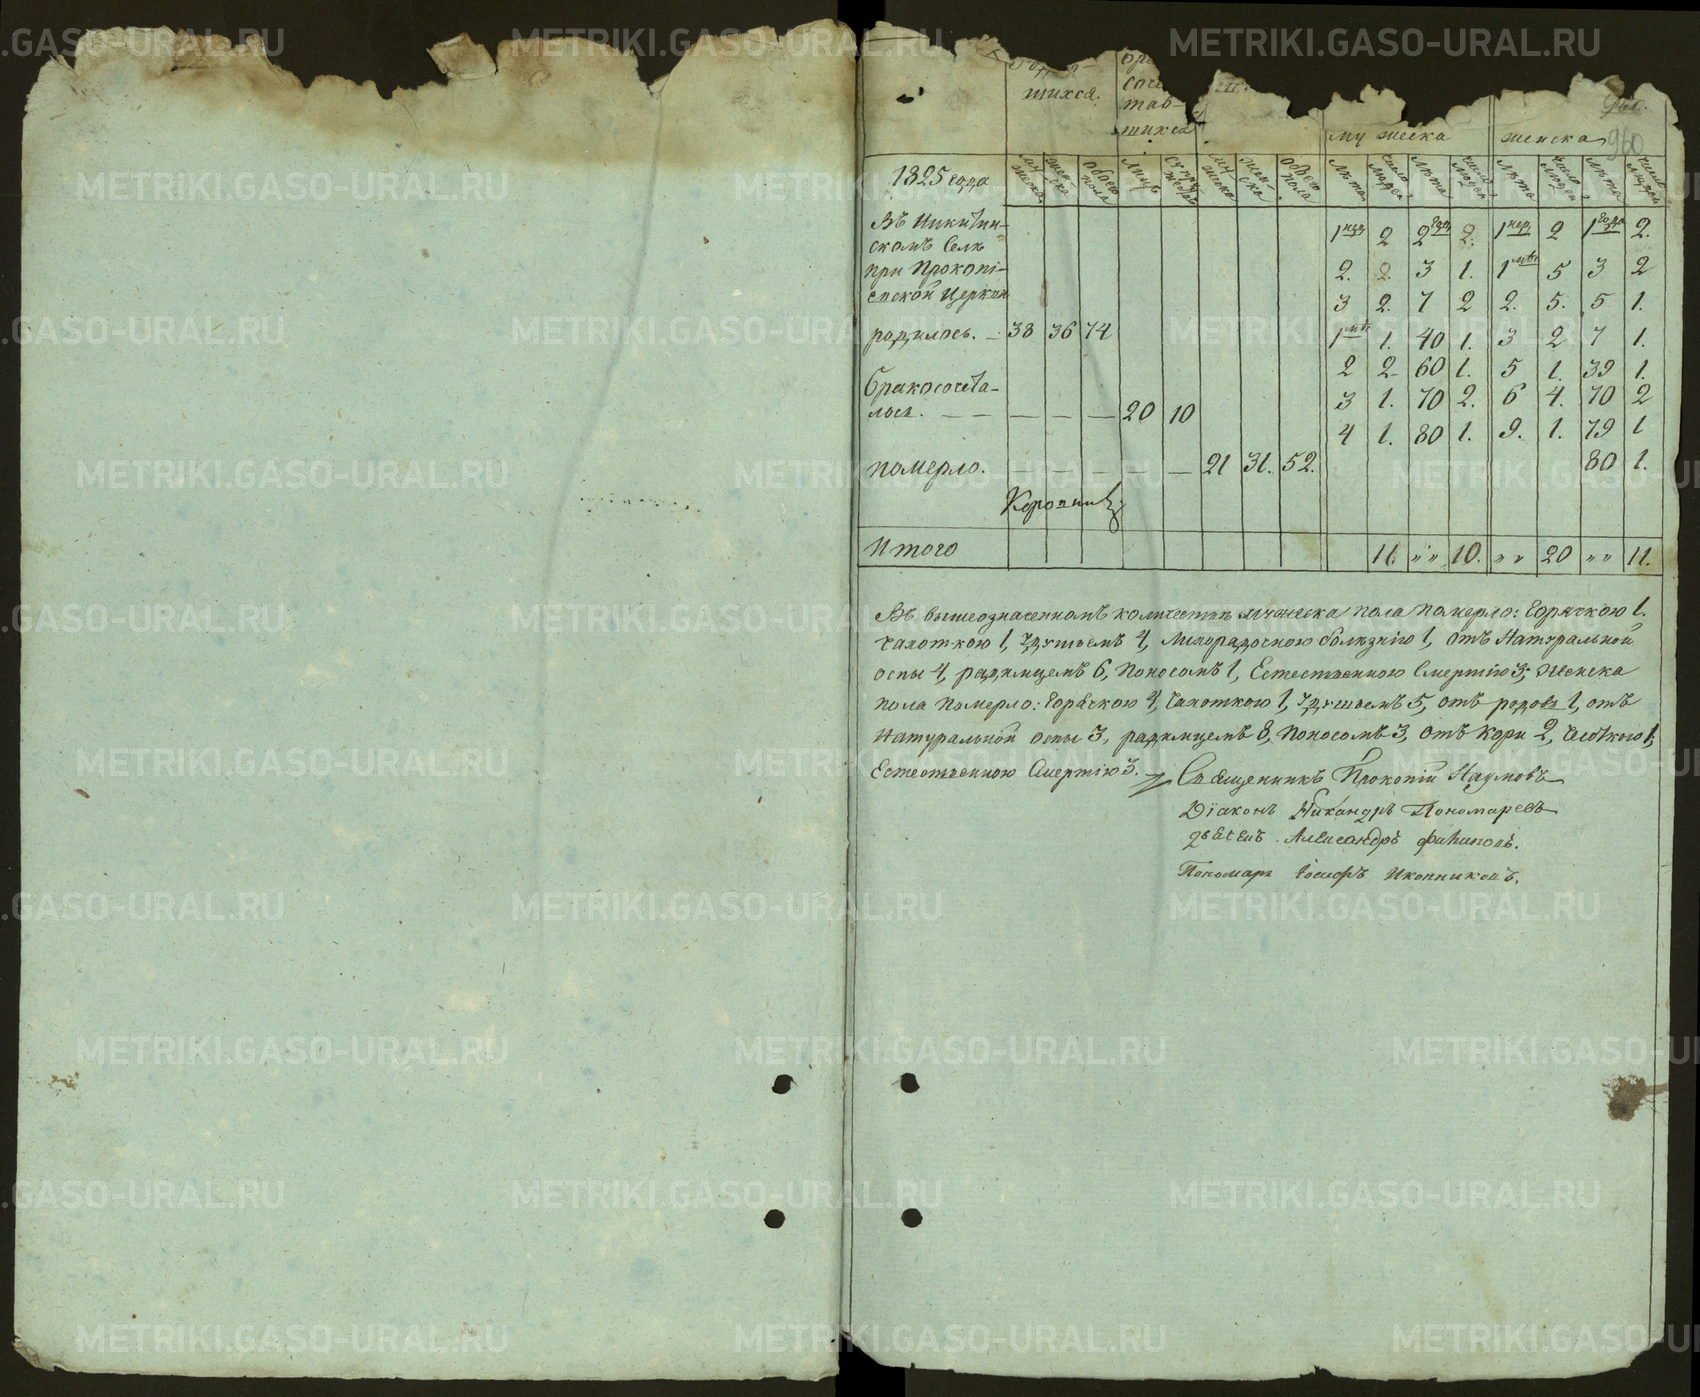 шихся.
соче
тав-
шихся
960
мужеска женска
1825 года мужеска женска обоего пола лицъ супружествъ мужеска женска обоего пола Лѣта число людей Лѣта число людей Лѣта число людей Лѣта число людей
Въ Никитин- 1 нед 2 2 год 2. 1 нед. 2 1 года 2.
скомъ Селѣ
при Прокопі- 2. 2 3 1. 1 мѣс 5 3 2
евской Церкви 3 2. 7 2 2. 5. 5 1.
родилось. 38 36 74 1 мѣс 1. 40 1. 3 2 7 1.
2 2 60 1. 5 1. 39 1.
Бракосочета- 3 1. 70 2. 6 4. 70 2
лось. — — — — — 20 10 4 1. 80 1. 9. 1. 79 1
померло. — — — — — 21 31. 52. 80 1.
Итого 11. „ „ 10. „ „ 20 „ „ 11.
Въ вышеозначенномъ количествѣ мужеска пола померло: Горячкою 1.
чахоткою 1, удушьемъ 4, Лихорадочною болѣзнію 1, отъ Натуральной
оспы 4, радимцемъ 6, Поносомъ 1, Естественною Смертію 3; Женска
пола померло: Горячкою 4, Чахоткою 1, удушьемъ 5, отъ родовъ 1, отъ
Натуральной оспы 3, радимцемъ 8, Поносомъ 3, отъ Кори 2, 1,
Естественною Смертію 3. Священникъ Прокопій Наумовъ
Діаконъ Никандръ Пономаревъ
Александръ Филиповъ.
Пономарь Іосифъ Иконниковъ.